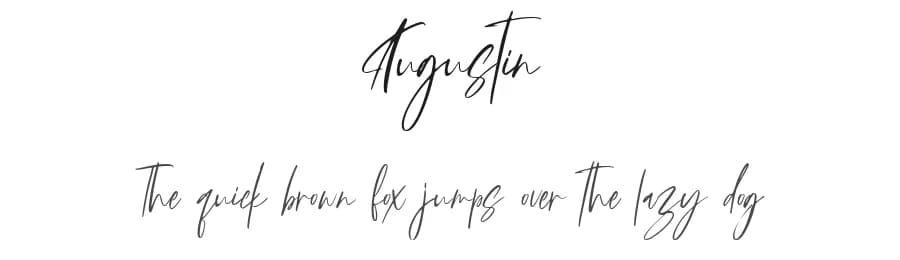 Augustin
The quick brown fox jumps over the lazy dog